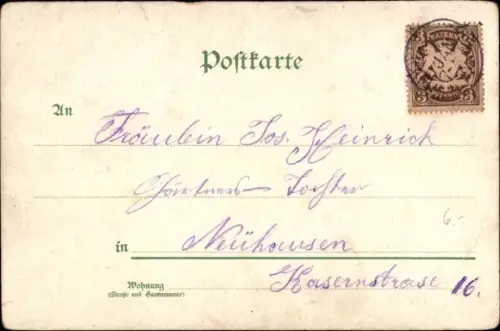 Postkarte
BAYERN
3 3
An Fräulein Jos. Heinrich
Gärtners-Tochter
6.-
in Neuhausen
Wohnung
(Straße und Hausnummer)
Kasernstrase 16.